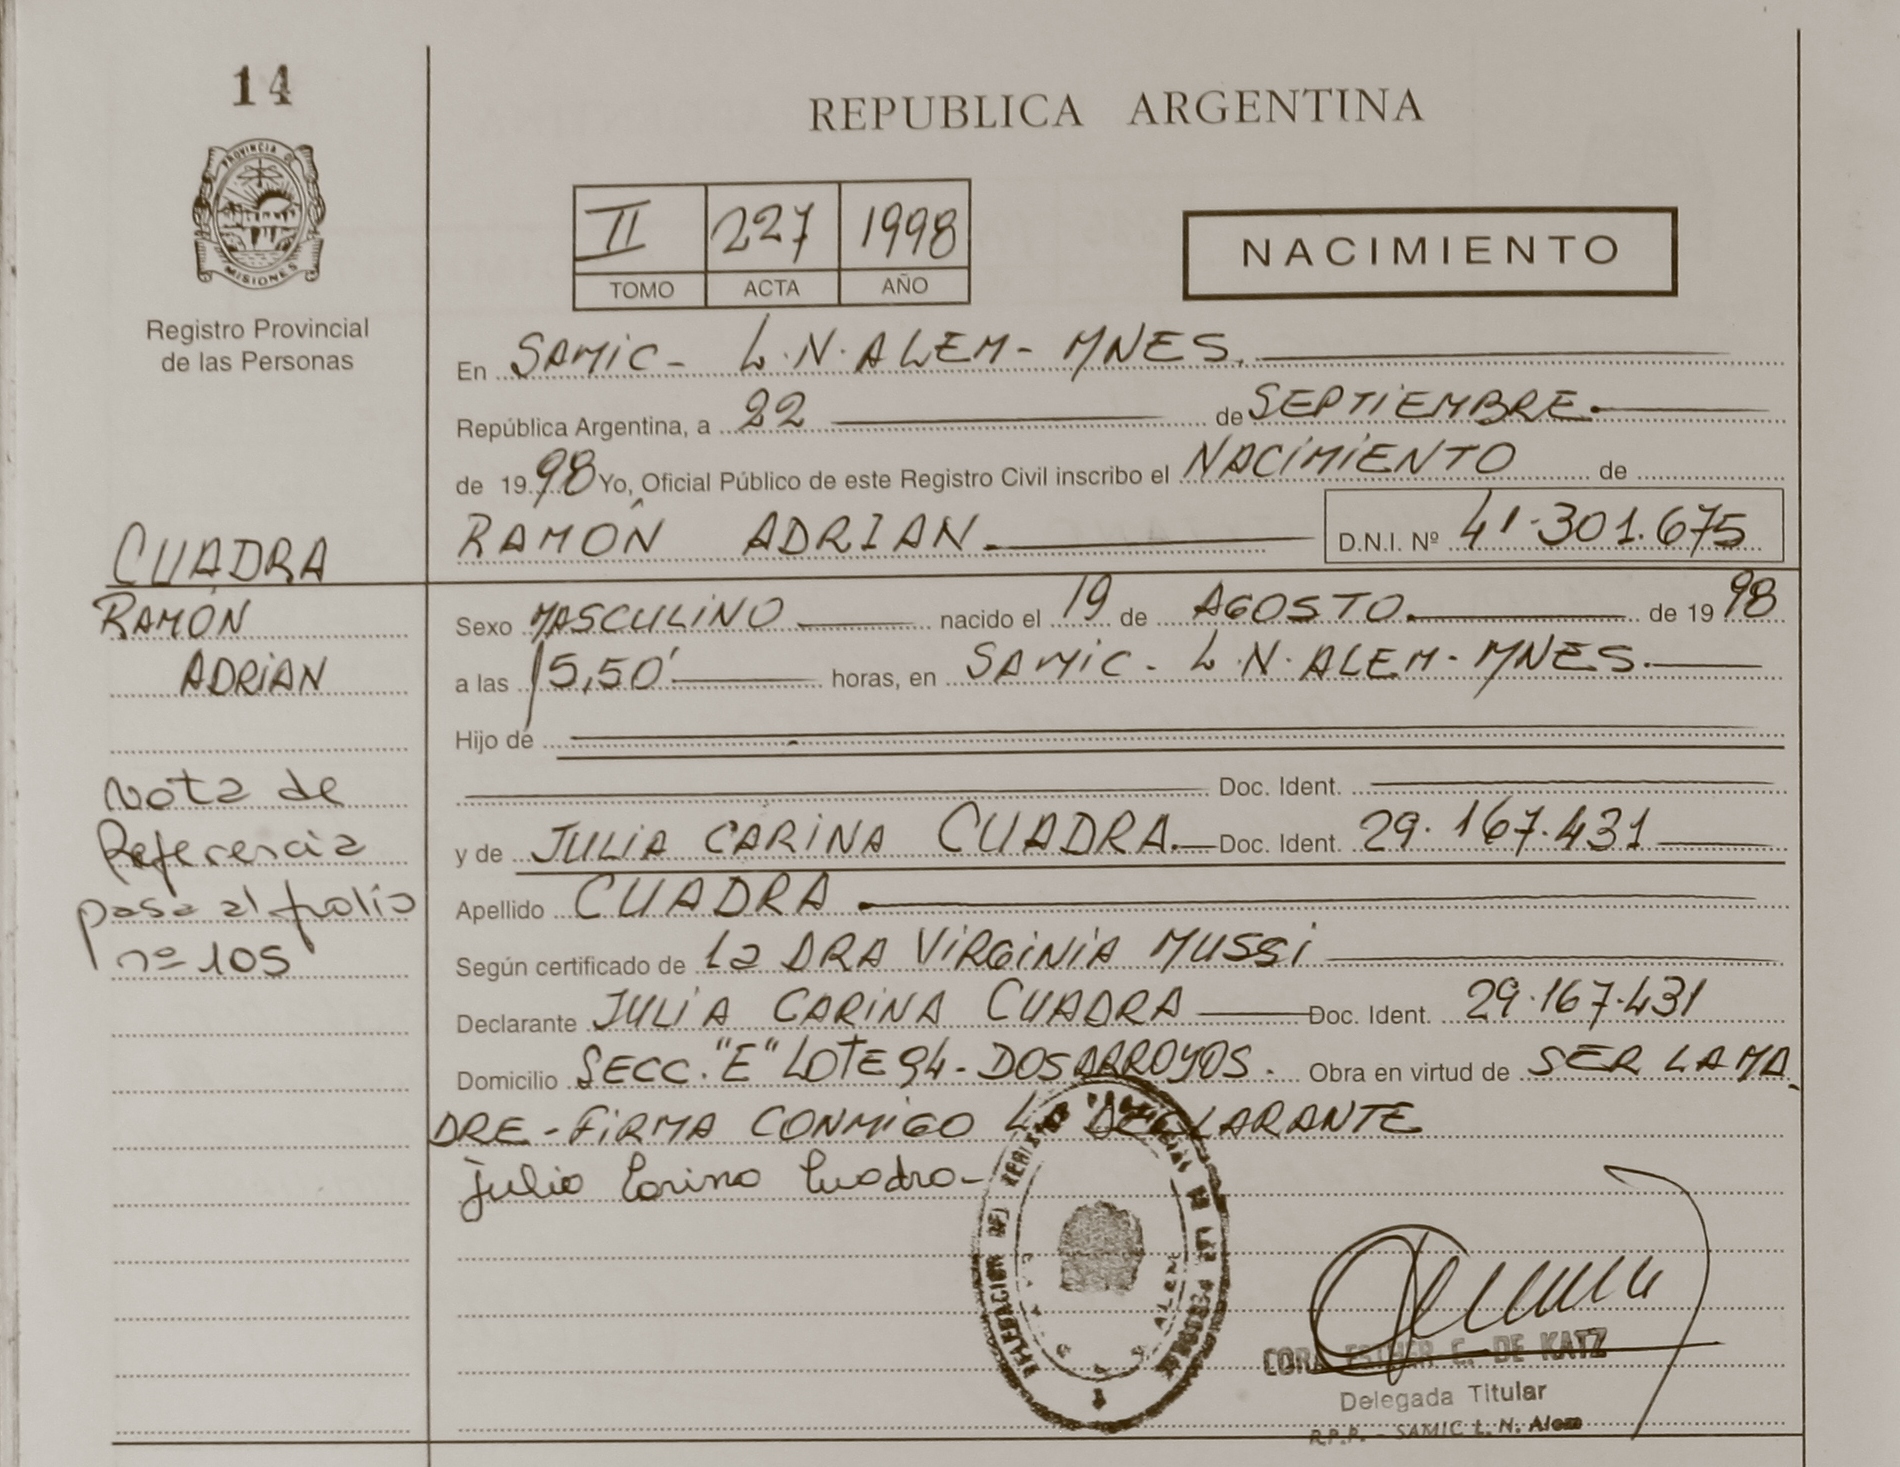 14
PROVINCIA D
MISIONES
Registro Provincial
de las Personas
REPUBLICA ARGENTINA
II 227 1998
TOMO ACTA AÑO
NACIMIENTO
En SAMIC - L.N. ALEM - MNES.
República Argentina, a 22 de SEPTIEMBRE.
de 1998 Yo, Oficial Público de este Registro Civil inscribo el NACIMIENTO de
RAMÓN ADRIAN. D.N.I. Nº 41.301.675
CUADRA
RAMÓN
ADRIAN
Nota de
Referencia
pasa al folio
nº 105
Sexo MASCULINO nacido el 19 de AGOSTO. de 1998
a las 15,50' horas, en SAMIC - L.N. ALEM - MNES.
Hijo de
Doc. Ident.
y de JULIA CARINA CUADRA. Doc. Ident. 29.167.431
Apellido CUADRA
Según certificado de La DRA VIRGINIA MUSSI
Declarante JULIA CARINA CUADRA Doc. Ident. 29.167.431
Domicilio SECC. "E" LOTE 94 - DOS ARROYOS. Obra en virtud de SER LA MA
DRE - FIRMA CONMIGO LA DECLARANTE
Julia Carina Cuadra -
CORA ESTHER C. DE KATZ
Delegada Titular
R.P.P. - SAMIC L. N. Alem